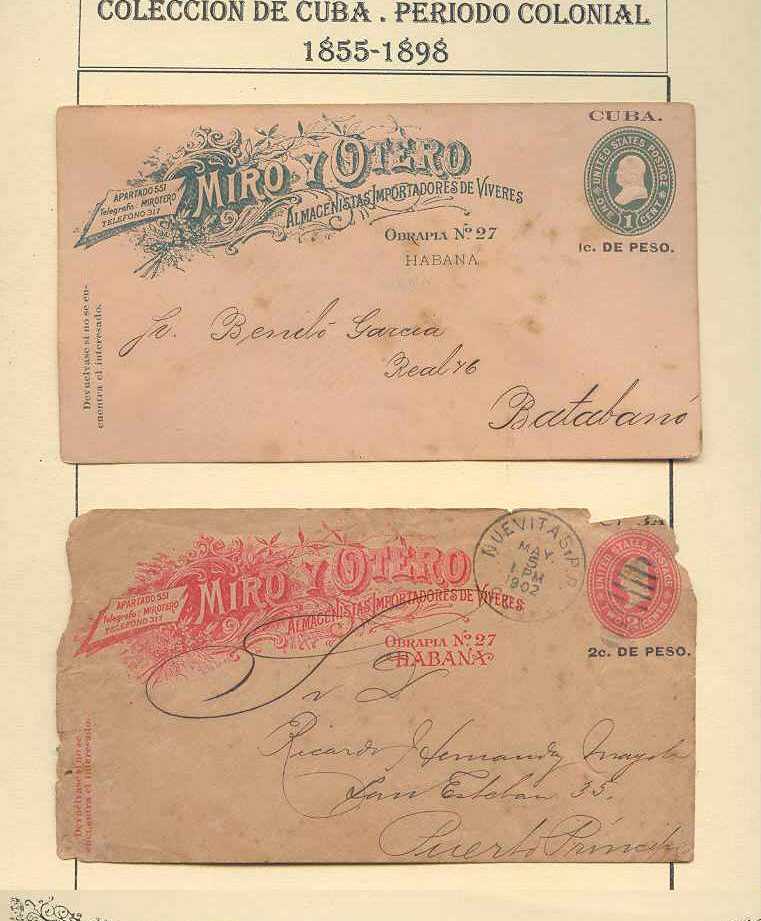 COLECCION DE CUBA . PERIODO COLONIAL
1855-1898
CUBA.
UNITED STATES POSTAGE
ONE 1 CENT
1c. DE PESO.
MIRO Y OTERO
ALMACENISTAS IMPORTADORES DE VÍVERES
APARTADO 551
Telegrafo: MIROTERO
TELEFONO 317
OBRAPIA No. 27
HABANA
Devuelvase si no se en-
cuentra el interesado.
Sr. Benito Garcia
Real 76
Batabanó
NUEVITAS, P.P.
MAY
5
1 PM
1902
UNITED STATES POSTAGE
2
2c. DE PESO.
MIRO Y OTERO
ALMACENISTAS IMPORTADORES DE VÍVERES
APARTADO 551
Telegrafo: MIROTERO
TELEFONO 317
OBRAPIA No. 27
HABANA
Devuélvase si no se
encuentra el interesado.
Sr D
Ricardo J Hernandez
San Esteban 35.
Puerto Príncipe